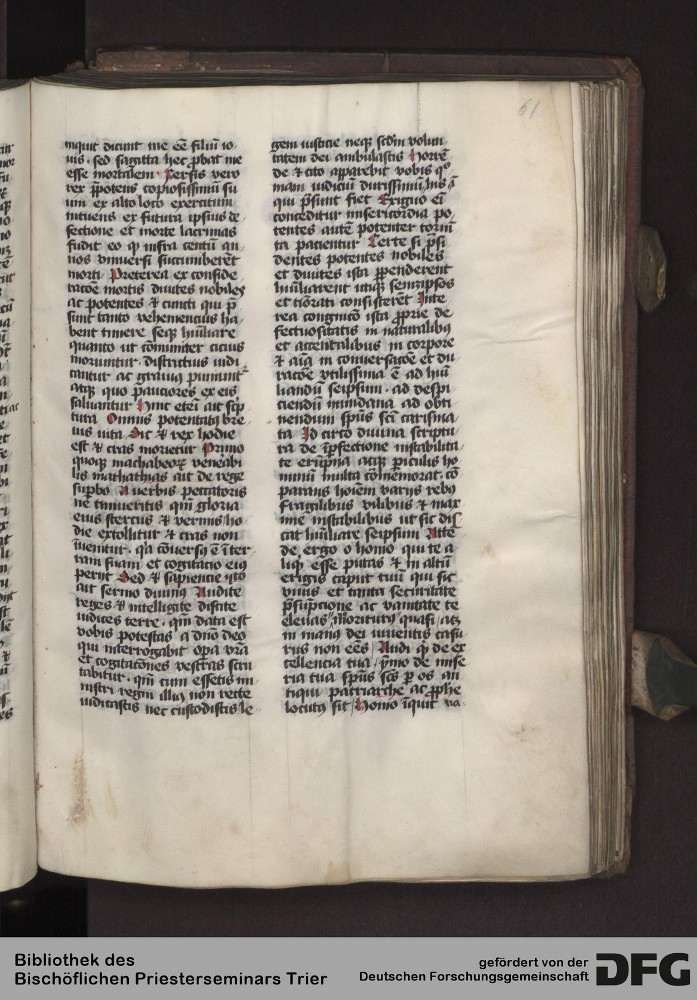 61
inquit dicunt me eē filiū io
uis · sed sagitta hec ꝓbat me
esse mortalem · Xerses vero
rex p̄potens copiosissimū su
um ex alto loco exercitum
intuens ex futura ipsius de
fectione et morte lacrimas
fudit eo qꝫ infra centū an
nos vniuersi succumberēt
morti · Preterea ex conside
racōe mortis diuites nobiles
ac potentes ⁊ cuncti qui p̄
sunt tanto vehemencius ha
bent timere seqꝫ hūiliare
quanto ut cōmuniter cicius
moriuntur · districtius iudi
cantur ac grauiꝰ puniunt᷑
atqꝫ quo pauciores ex eis
saluantur Hinc eteī ait scp̄
tura Omnis potentatꝰ bre
uis uita Sic ⁊ rex hodie
est ⁊ cras morietur Primo
quoqꝫ machabeoꝝ venerabi
lis mathathias ait de rege
supbo A verbis peccatoris
ne timueritis qm̄ gloria
eius stercus ⁊ vermis ho
die extollitur ⁊ cras non
īuenitur · q̄a cōuersꝰ ē ī ter
ram suam et cogitacio eiꝰ
periit Sed ⁊ sapiencie
ait sermo diuinꝰ Audite
reges ⁊ intelligite discite
iudices terre · qm̄ data est
vobis potestas a dn̄o deo
qui interrogabit opa vrā
et cogitatōnes vestras scru
tabitur · qm̄ cum essetis mi
nistri regni illiꝰ non recte
iudicastis nec custodistis le
gem iusticie neqꝫ scdm̄ volun
tatem dei ambulastis Horrē
de ⁊ cito apparebit vobis qꝰ
niam iudiciū durissimū hīs
qui p̄sunt fiet Exiguo eī
conceditur misericordia po
tentes autē potenter tormē
ta pacientur Certe si p̄si
dentes potentes nobiles
et diuites ista ꝑpenderent
hūiliarent utiqꝫ semetipsos
et tiōrati consisterēt Inte
rea congnicō ista ꝓprie de
fectuositatis in naturalibꝰ
et accentalibus in corpore
⁊ aīa in conuersacōe et du
racōe vtilissima ē ad hūi
liandū seipsum · ad despi
ciendū mundana ad obti
nendum sp̄us scī carisma
ta Id circo diuina scriptu
ra de īpfectione instabilita
te erūpna atqꝫ piculis ho
minū multa cōmemorat · cō
parans hoīem varijs rebꝰ
fragilibus vilibus ⁊ max
ime instabilibus ut sic dis
cat hūiliare seipsum Attē
de ergo o homo qui te a
liqͥd esse putas ⁊ in altū
erigis caput tuū qui sic
viuis et tanta securitate
p̄sūpcione ac vanitate te
eleuas moriturꝰ quasi atqꝫ
in manꝰ dei viuentis casu
rus non eēs Audi qͥd de ex
cellencia tua ymo de mise
ria tua sp̄us scs ꝑ os an
tiqui patriarche ac ꝓphe
locutꝰ sit Homo īquit na
Bibliothek des
Bischöflichen Priesterseminars Trier
gefördert von der
Deutschen Forschungsgemeinschaft
DFG